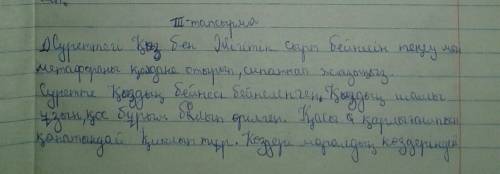 III-тапсырма
1) Суреттегі Қыз бен Жігіттің сырт бейнесін теңеу мен
метафораны қолдана отырып, сипаттап жазыңыз.
Суретте Қыздың бейнесі бейнеленген. Қыздың шашы
ұзын, қос бұрым болып өрілген. Қасы қарлығаштың
қанатындай қиылып тұр. Көздері маралдың көздеріндей